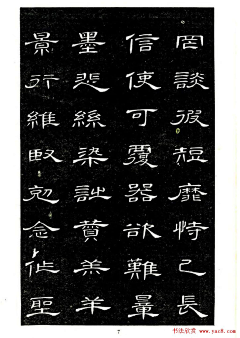 罔談彼短靡恃己長
信使可覆器欲難量
墨悲絲染詩贊羔羊
景行維賢剋念作聖
7
书法欣赏 www.yac8.com